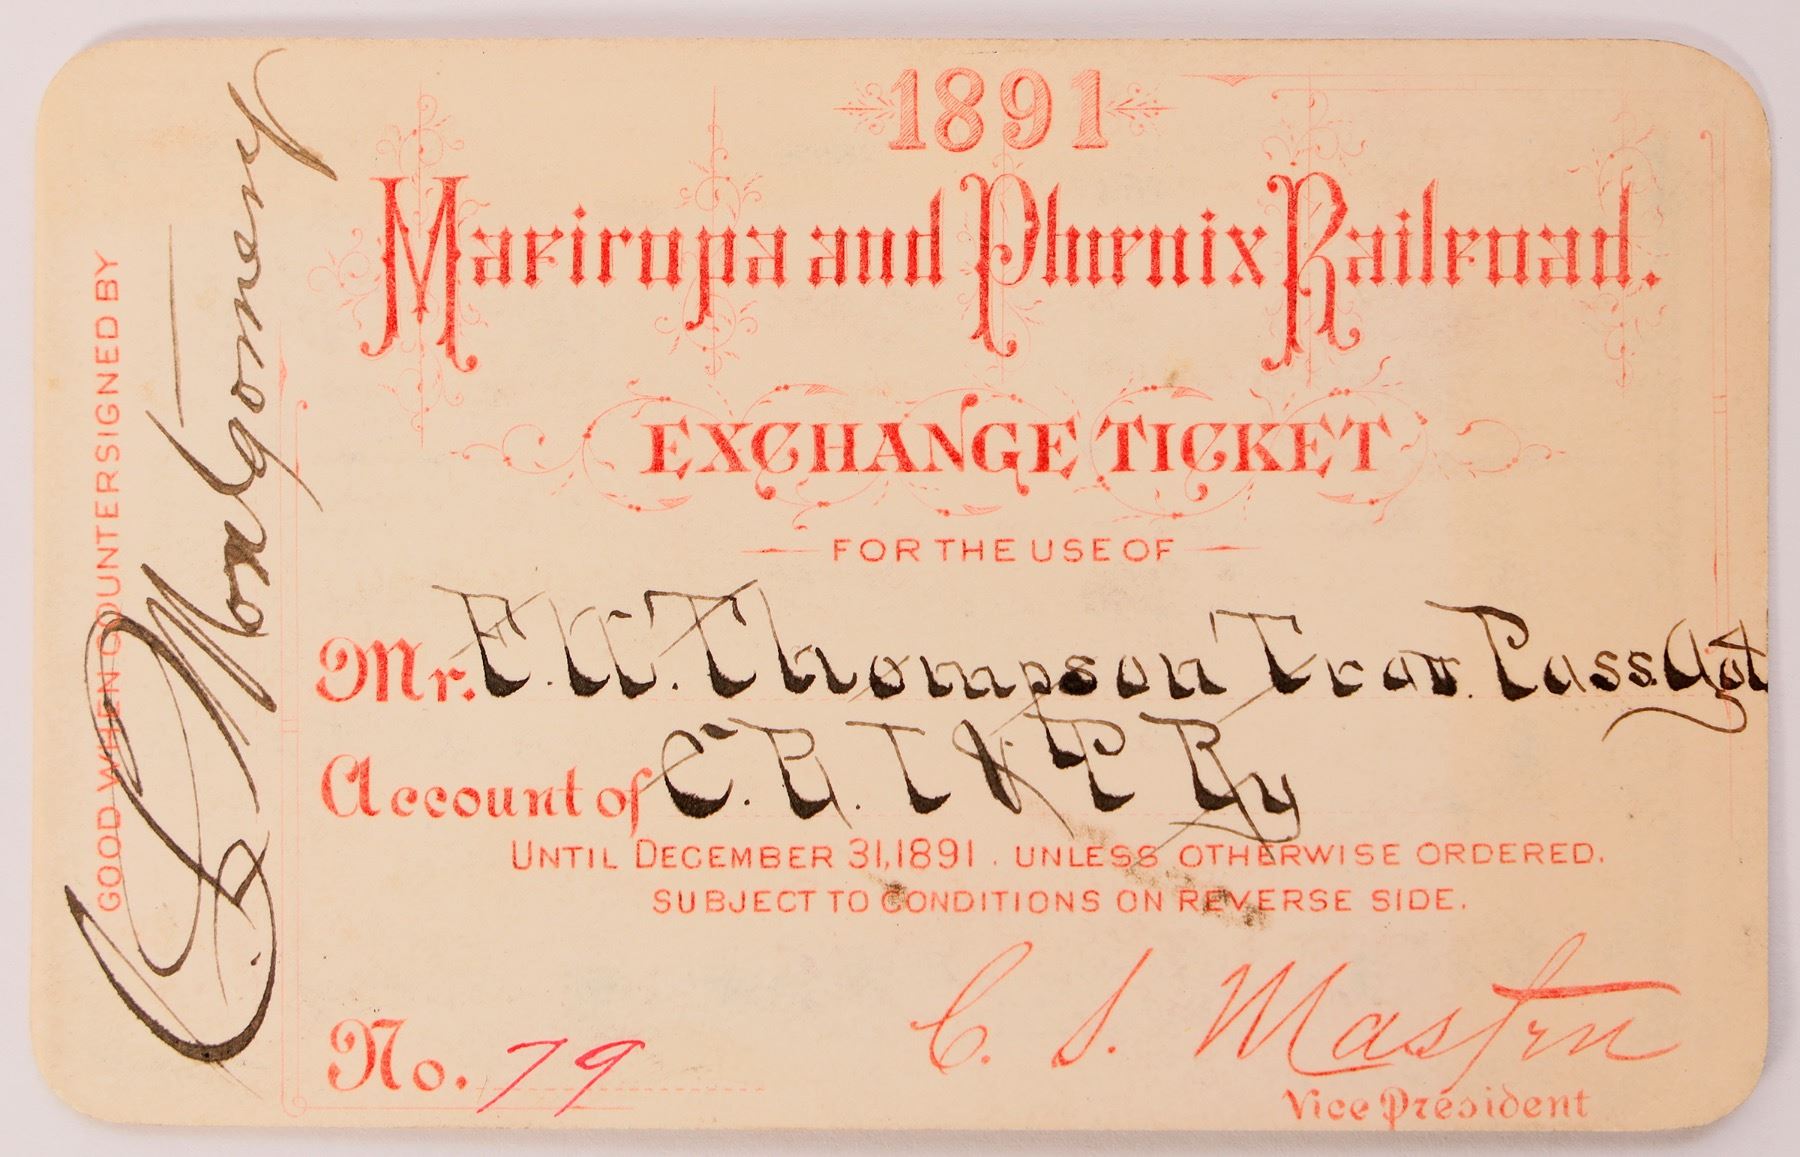 1891
Maricopa and Phoenix Railroad.
EXCHANGE TICKET
FOR THE USE OF
Mr. F. W. Thompson Trav. Pass. Agt
Account of C. R. I & P Ry
UNTIL DECEMBER 31, 1891. UNLESS OTHERWISE ORDERED.
SUBJECT TO CONDITIONS ON REVERSE SIDE.
No. 79
C. S. Masten
Vice President
GOOD WHEN COUNTERSIGNED BY
Montgomery